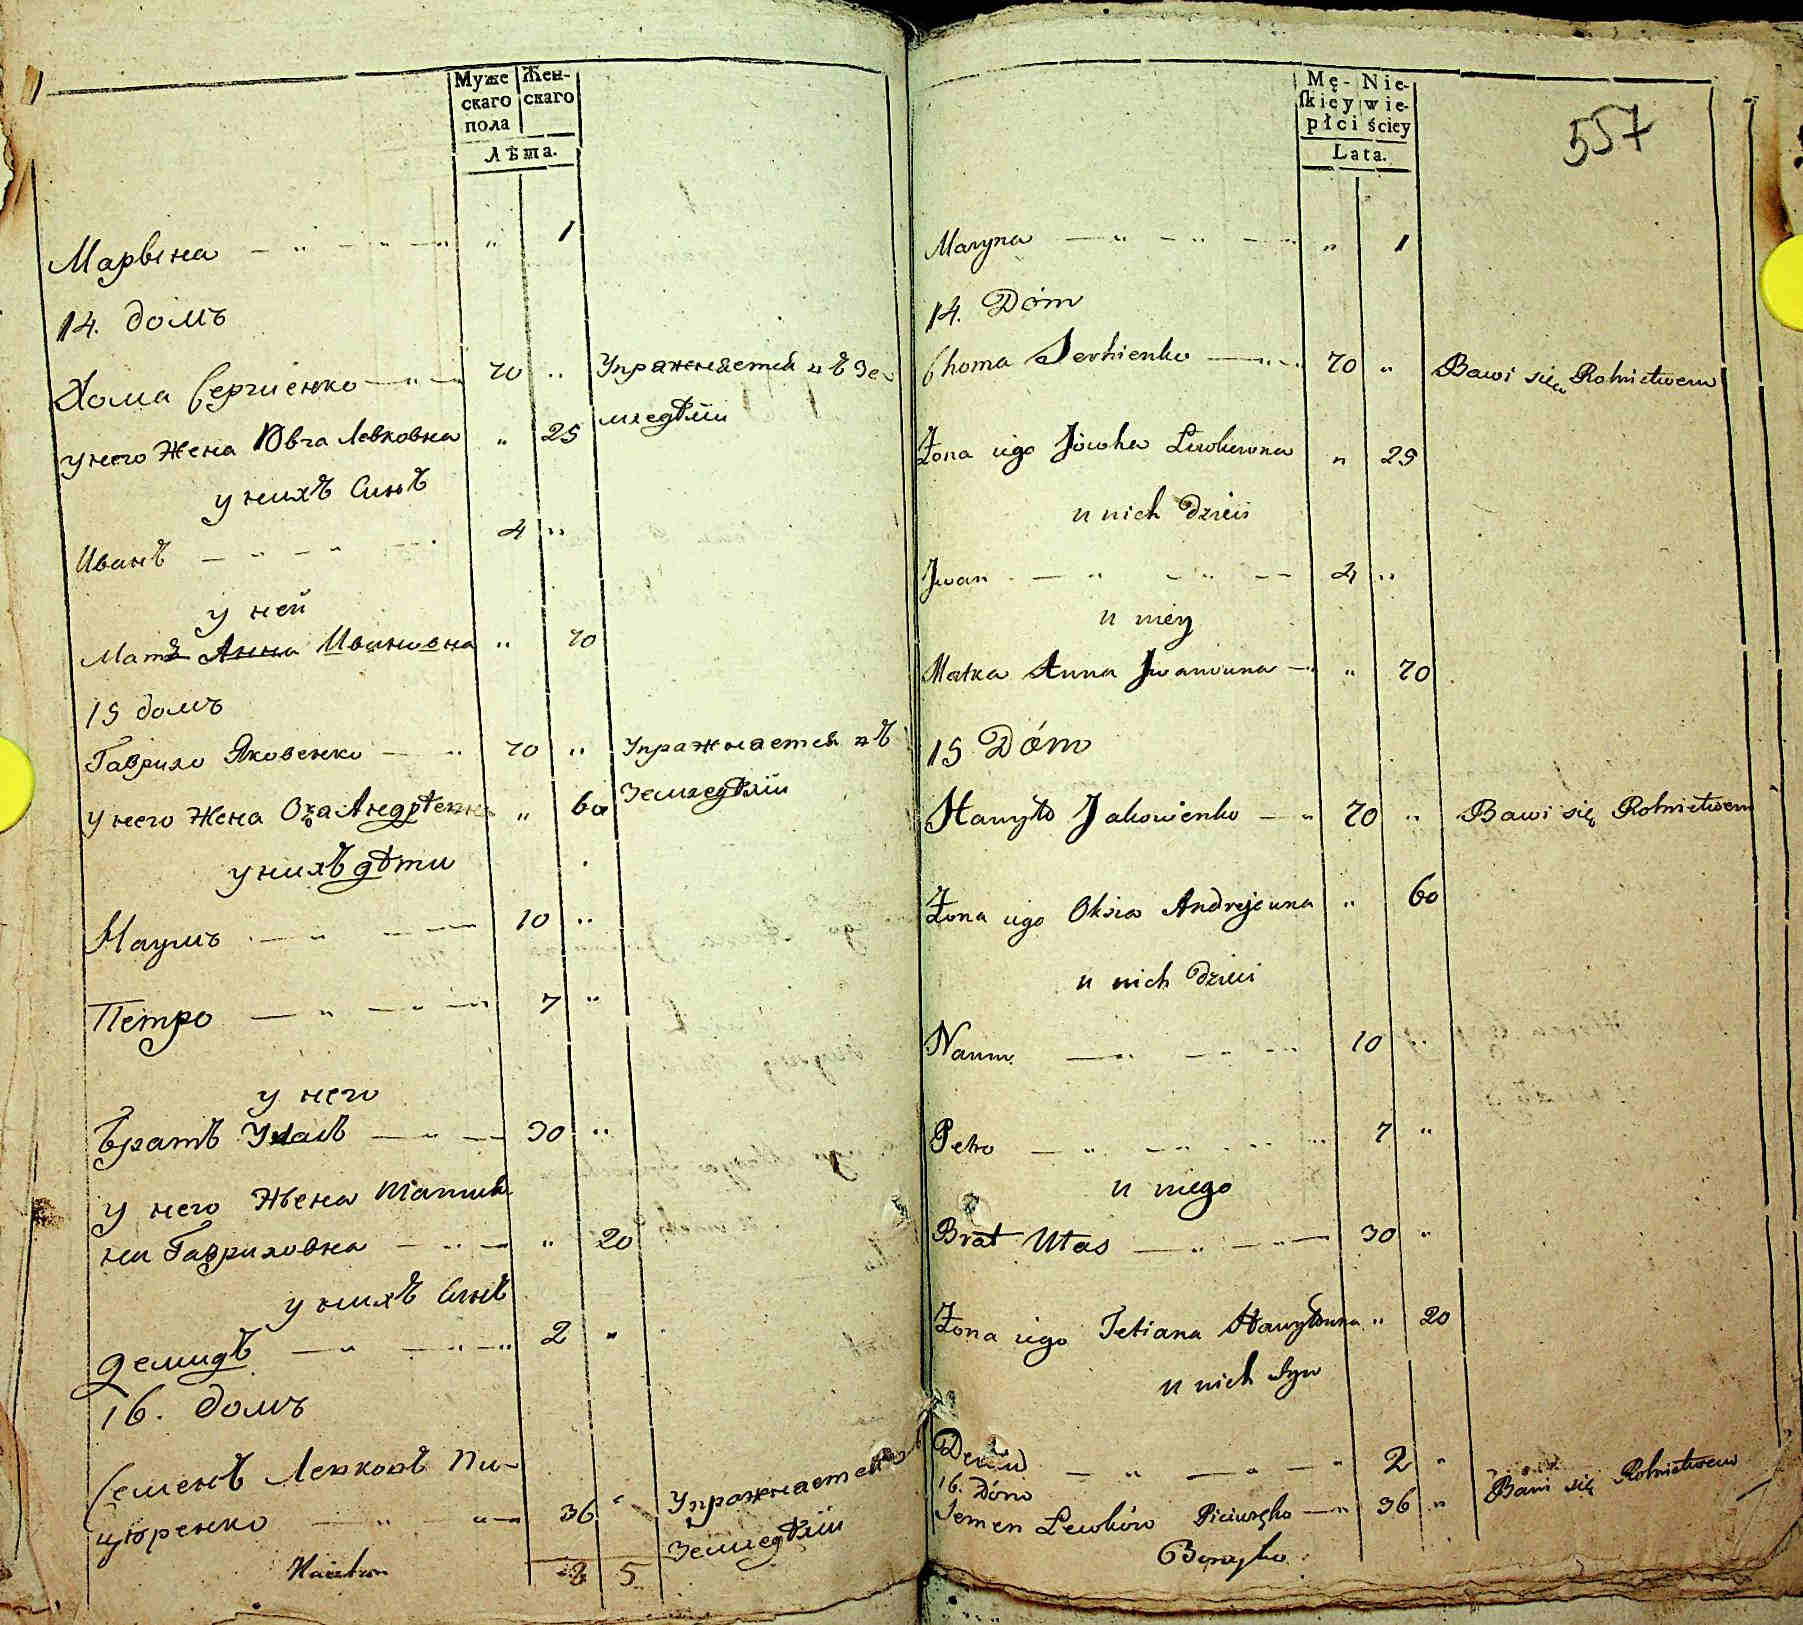 Муже Жен-
скаго скаго
пола
Лѣта.
Марына — „ — „ — „ „ 1
14. домъ
Хома Сергіенко — „ — 70 „ Упражняется въ зе-
у него Жена Ювга Левковна „ 25 мледѣліи
у нихъ Синъ
Иванъ — „ — „ — 4 „
у ней
Матъ Анна Ивановна „ 70
15 домъ
Гаврило Яковенко — „ 70 „ Упражняется въ
у него Жена Андрѣевна „ 60 Земледѣліи
у нихъ дѣти
Наумъ — „ — „ — 10 „
Петро — „ — „ — 7 „
у него
Братъ Уласъ — „ — 30 „
у него Жена Татия
на Гавриловна — „ — „ 20
у нихъ Синъ
Демидъ — „ — „ — „ 2 „
16. домъ
Семенъ Левковъ Пи-
цюренко — „ — „ — 36 „ Упражняется
Земледѣліи
8 5
557
Mę- Nie-
ſkiey wie-
płci ściey
Lata.
Maryna — „ — „ — „ „ 1
14. Dóm
Choma Serhienko — „ — 70 „ Bawi się Rolnictwem
Żona iego Jowha Lewkowna „ 25
u nich Dzieci
Jwan — „ — „ — 4 „
u niey
Matka Anna Jwanowna — „ 70
15 Dóm
Hawryło Jakowienko — „ 70 „ Bawi się Rolnictwem
Żona iego Oksia Andrejewna „ 60
u nich Dzieci
Naum — „ — „ — 10 „
Petro — „ — „ — „ 7 „
u niego
Brat Ułas — „ — „ — 30 „
Żona iego Tetiana Hawryłowna „ 20
u nich Syn
Demid — „ — „ — „ 2 „
16. Dóm
Semen Lewków — „ 36 „ Bawi się Rolnictwem